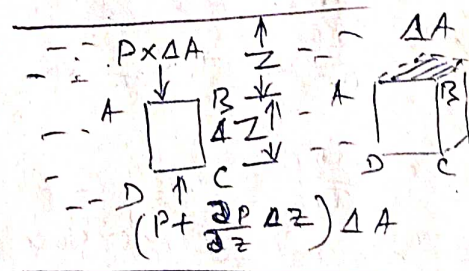 P×ΔA
Z
ΔA
A
B
ΔZ
D
C
A
B
D
C
(P + ∂P/∂z ΔZ) ΔA